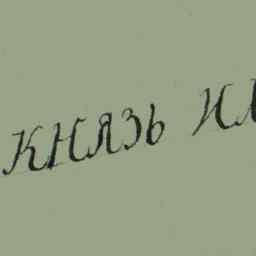 КНЯЗЬ